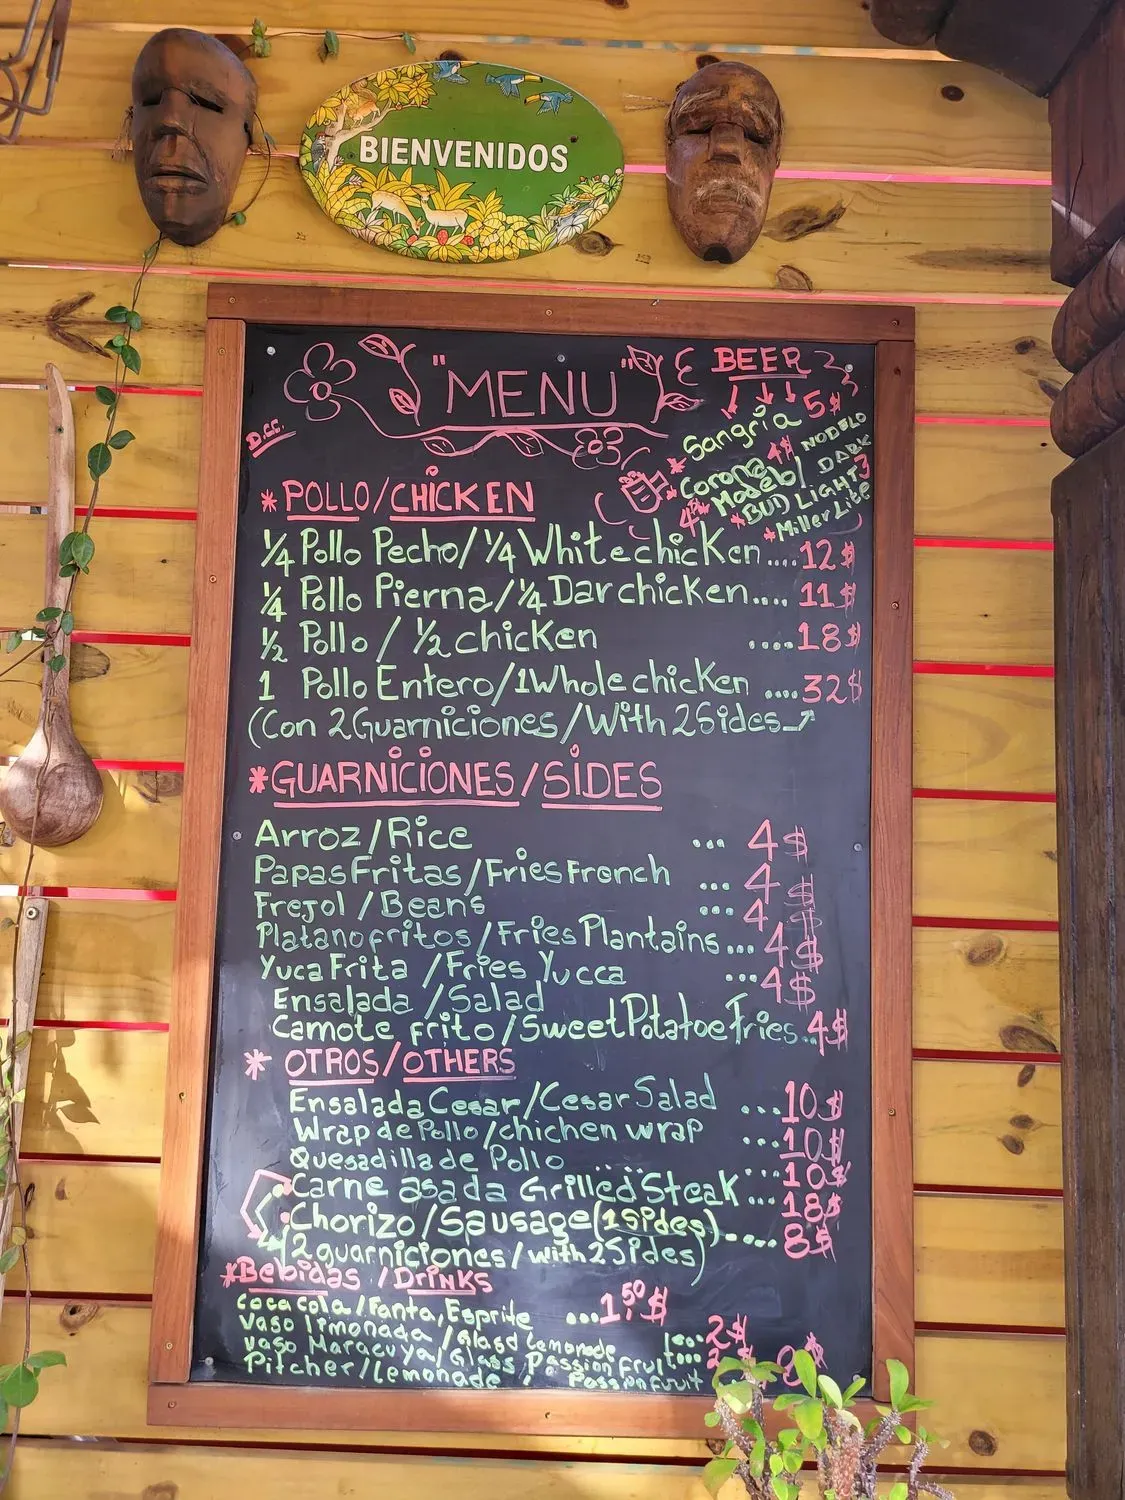 BIENVENIDOS
"MENU"
D.C.C.
BEER
Sangria 5$
Corona 4$
Modebl 4$
NODELO
DARK
*BUD LIGHT 3
*Miller Lite
*POLLO/CHICKEN
1/4 Pollo Pecho/ 1/4 White chicken....12$
1/4 Pollo Pierna/1/4 Dar chicken.... 11$
1/2 Pollo / 1/2 chicken ....18$
1 Pollo Entero/1 Whole chicken ....32$
(Con 2 Guarniciones/With 2 Sides
*GUARNICIONES/SIDES
Arroz/Rice ... 4$
Papas Fritas/Fries Fronch ... 4$
Frejol / Beans ... 4$
Platano fritos/Fries Plantains... 4$
Yuca Frita /Fries Yucca ...4$
Ensalada /Salad
Camote frito/Sweet Potatoe Fries..4$
* OTROS/OTHERS
Ensalada Cesar/Cesar Salad ...10$
Wrap de Pollo/chichen wrap ...10$
Quesadilla de Pollo ...... 10$
Carne asada Grilled Steak...18$
Chorizo/Sausage(1 sides).....8$
(2 guarniciones/with 2 Sides)
*Bebidas /Drinks
Coca cola/Fanta, Esprite ...1,50$
Vaso limonada /Glasd Lemonade 2$
Vaso Maracuya/Glass Passion Fruit.... 2
Pitcher/Lemonade, Passion fruit 8$